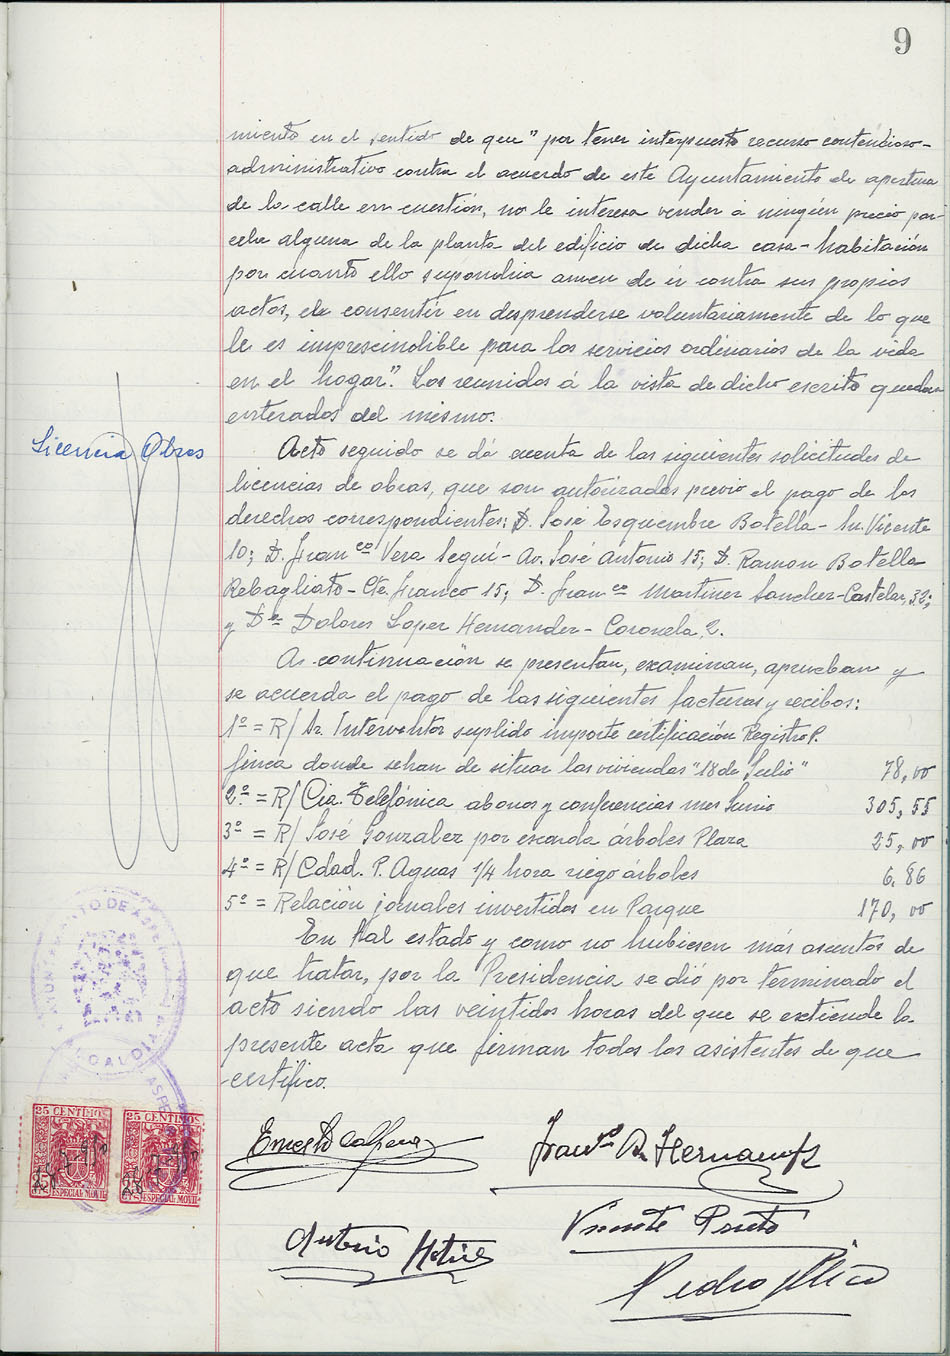 9
miento en el sentido de que "por tener interpuesto recurso contencioso-
administrativo contra el acuerdo de este Ayuntamiento de apertura
de la calle en cuestión, no le interesa vender á ningún precio par-
cela alguna de la planta del edificio de dicha casa-habitación
por cuanto ello supondria amen de ir contra sus propios
actos, el consentir en desprenderse voluntariamente de lo que
le es imprescindible para los servicios ordinarios de la vida
en el hogar". Los reunidos á la vista de dicho escrito quedan
enterados del mismo.
Licencia Obras
Acto seguido se dá cuenta de las siguientes solicitudes de
licencias de obras, que son autorizadas previo el pago de los
derechos correspondientes: D. José Esquembre Botella- Sn. Vicente
10; D. Franco Vera Seguí- Av. José Antonio 15; D. Ramon Botella
Rebagliato- Cte. Franco 15; D. Franco Martinez Sanchez-Castelar, 32;
y Da Dolores Lopez Hernandez- Coronela 2.
A continuación se presentan, examinan, aprueban y
se acuerda el pago de las siguientes facturas y recibos:
1º = R/ Sr. Interventor suplido importe certificación Registro P.
finca donde sehan de situar las viviendas "18 de Julio" 78,00
2º = R/ Cia. Telefónica abonos y conferencias mes Junio 305,55
3º = R/ José Gonzalez por escarda árboles Plaza 25,00
4º = R/ Cdad. P. Aguas 1/4 hora riego árboles 6,86
5º = Relación jornales invertidos en Parque 170,00
En tal estado y como no hubiesen más asuntos de
que tratar, por la Presidencia se dió por terminado el
acto siendo las veintidos horas del que se extiende la
presente acta que firman todos los asistentes de que
certifico.
AYUNTAMIENTO DE ASPE
ALCALDIA
25 CENTIMOS
ESPECIAL MOVIL
25 CENTIMOS
ESPECIAL MOVIL
Franco Hernandez
Vicente Prieto
Antonio
Pedro